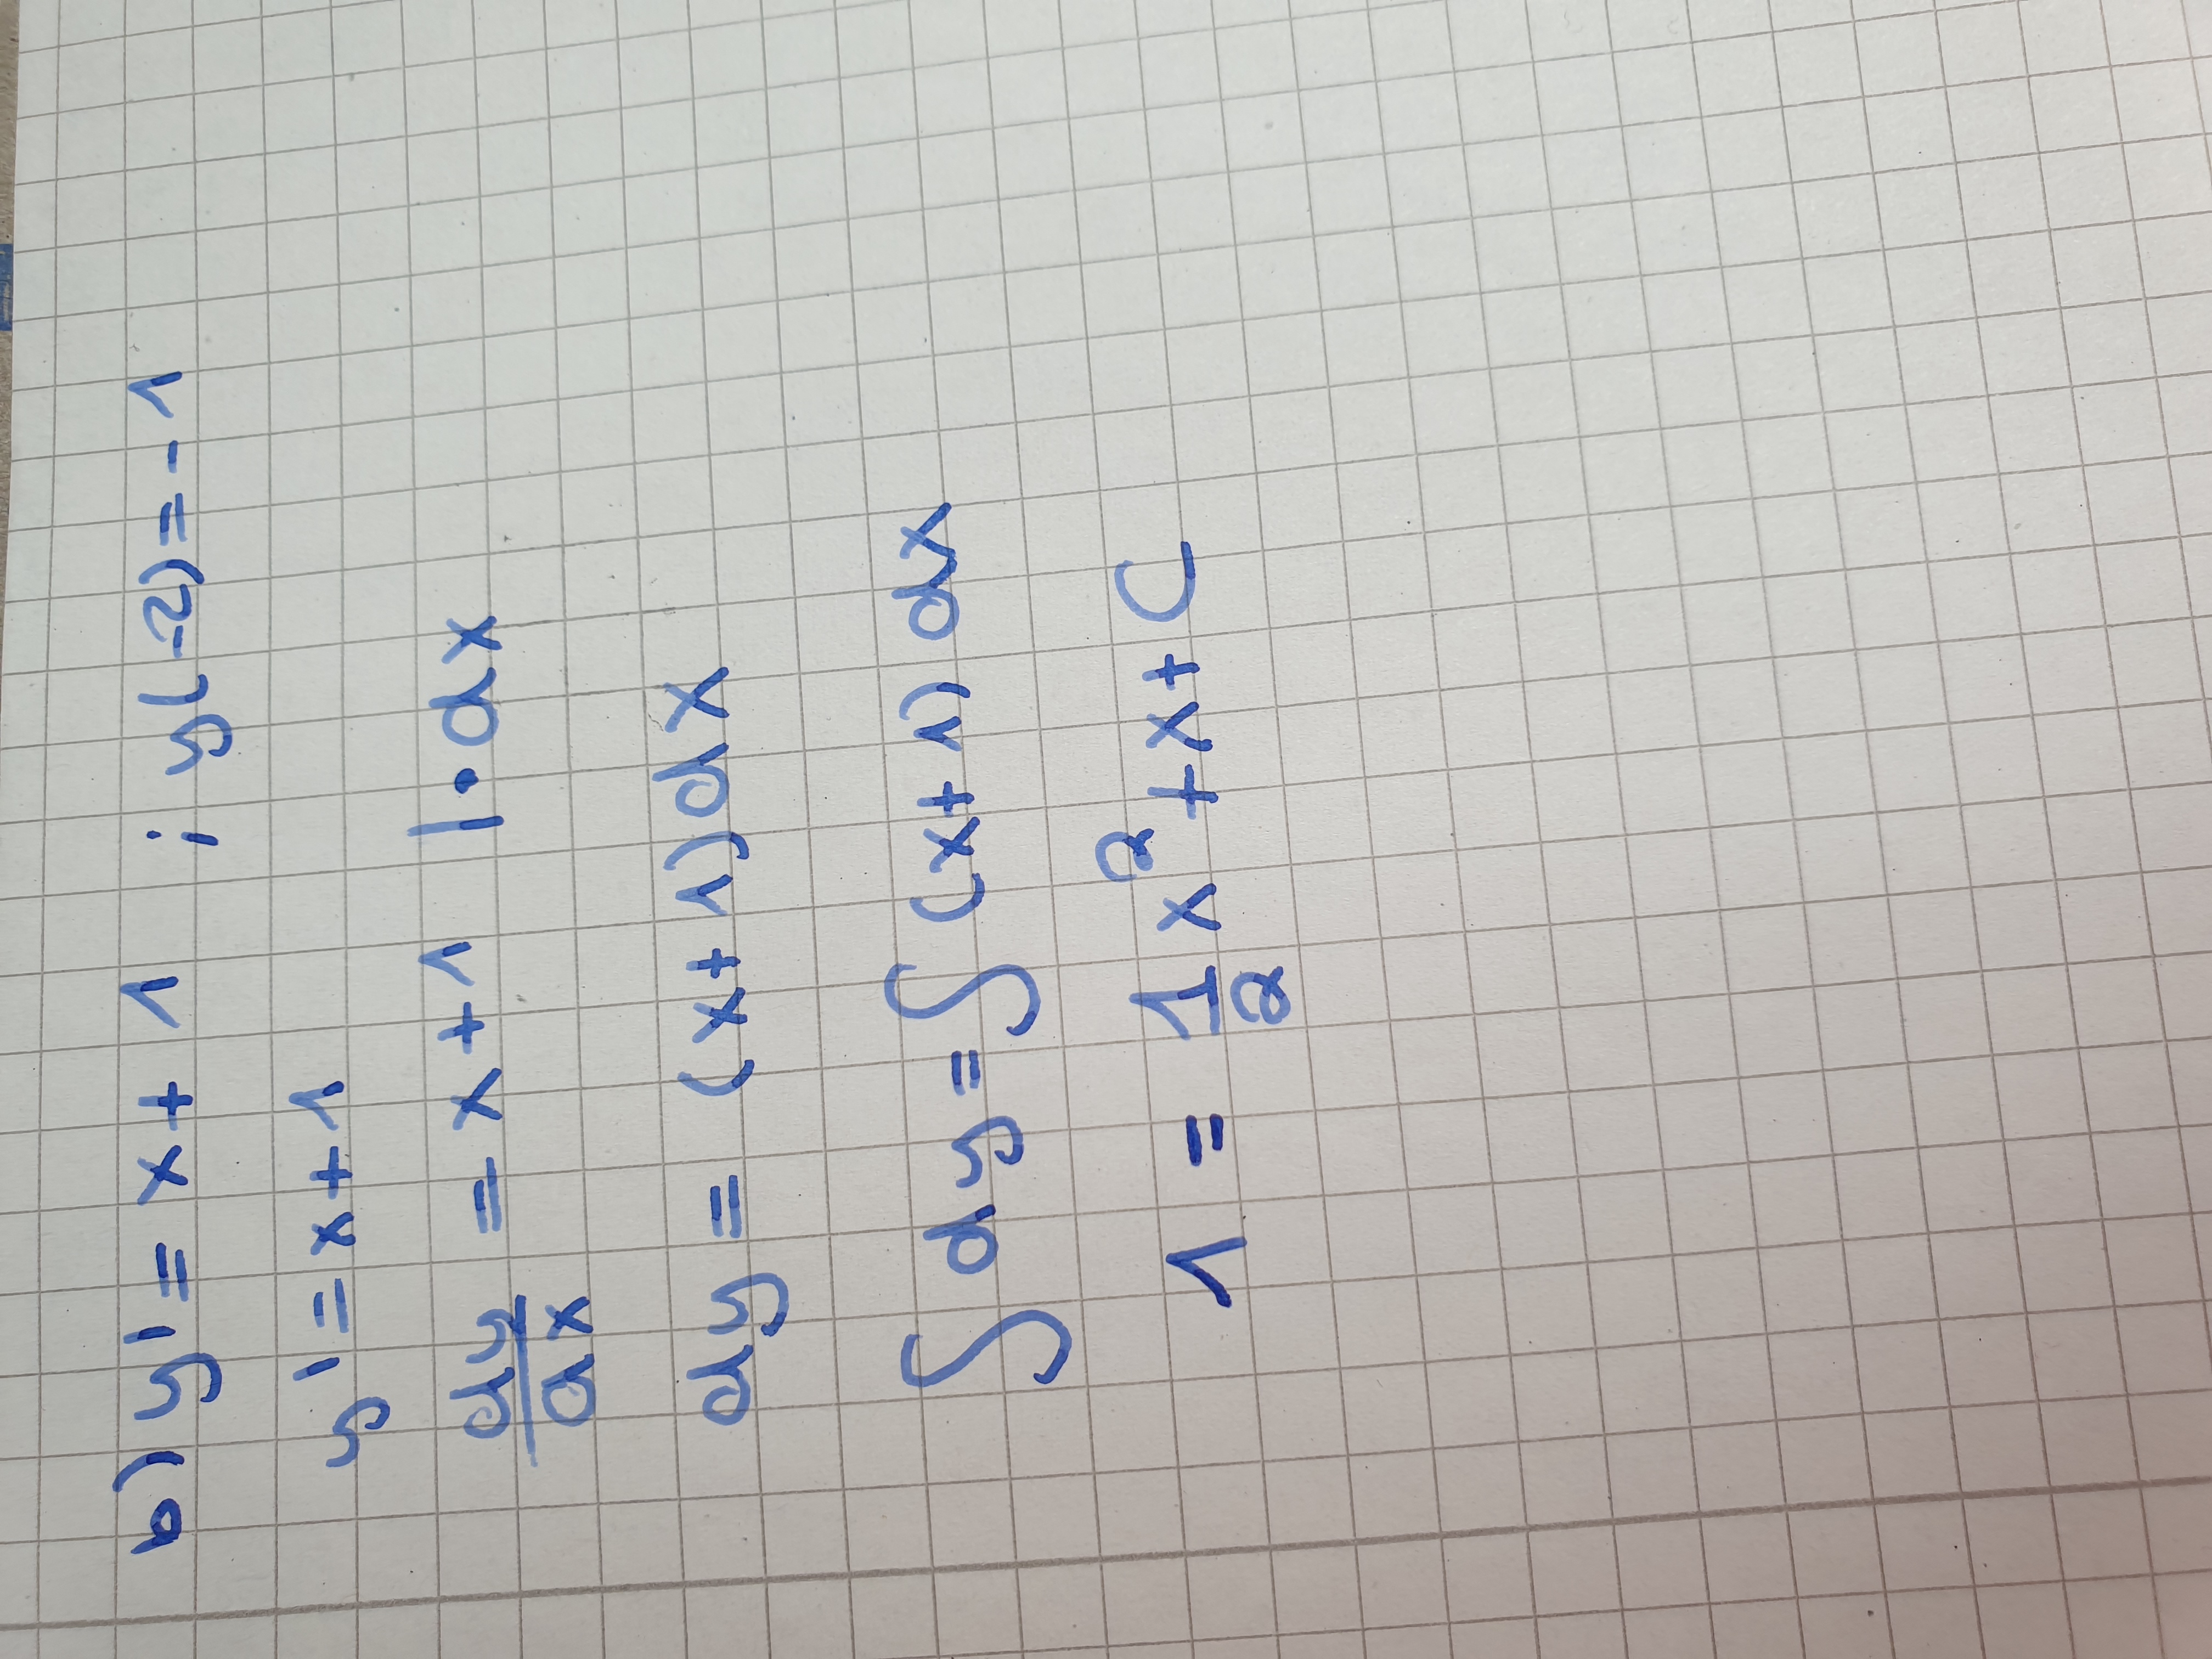 b) y' = x + 1 ; y(-2) = -1
y' = x + 1
dy/dx = x + 1 | · dx
dy = (x + 1) dx
∫ dy = ∫ (x + 1) dx
1 = 1/2 x² + x + C